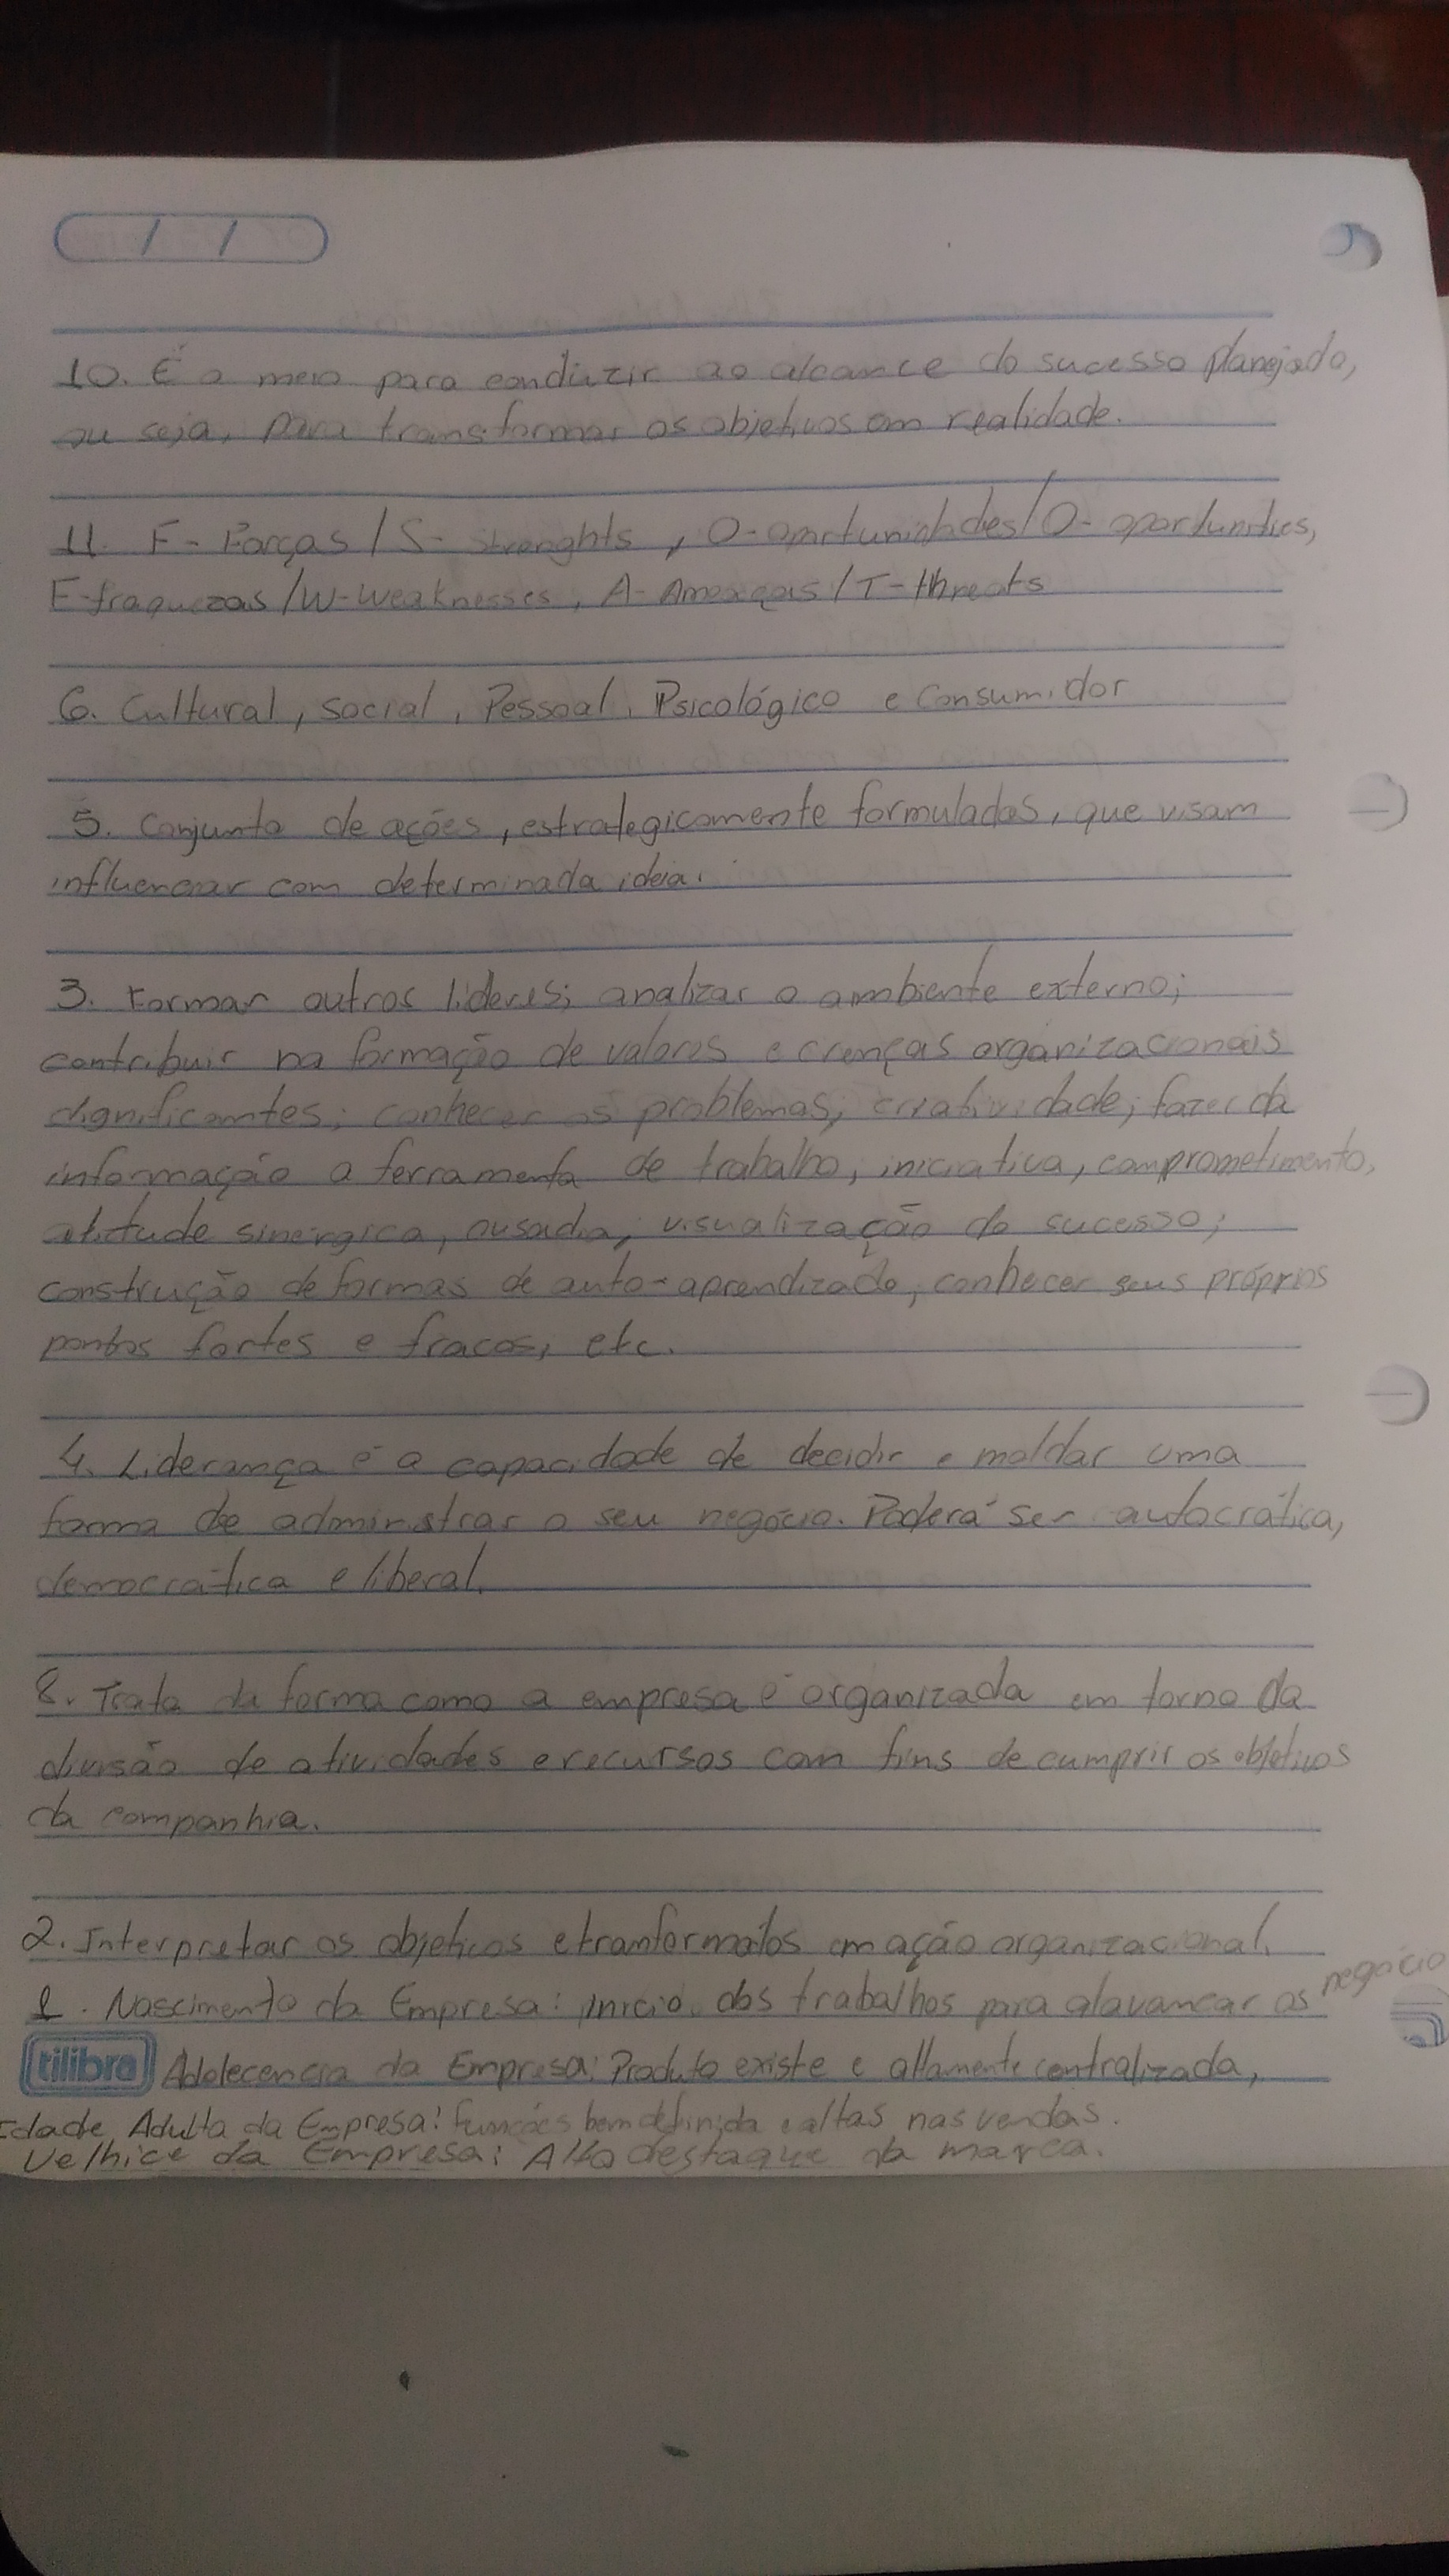 / /
10. É o meio para conduzir ao alcance do sucesso planejado,
ou seja, para transformar os objetivos em realidade.
11. F- Forças / S- Strenghts, O-oportunidades/O- oportunities,
F-fraquezas /W-Weaknesses, A- Ameaças / T-threats
6. Cultural, social, Pessoal, Psicológico e Consumidor
5. Conjunto de ações, estrategicamente formuladas, que visam
influenciar com determinada ideia.
3. Formar outros líderes; analizar o ambiente externo;
contribuir na formação de valores e crenças organizacionais
dignificantes; conhecer os problemas; criatividade; fazer da
informação a ferramenta de trabalho, iniciativa, comprometimento,
atitude sinérgica, ousadia, visualização do sucesso;
construção de formas de auto-aprendizado; conhecer seus próprios
pontos fortes e fracos, etc.
4. Liderança é a capacidade de decidir e moldar uma
forma de administrar o seu negócio. Poderá ser autocrática,
democrática e liberal.
8. Trata da forma como a empresa é organizada em torno da
divisão de atividades e recursos com fins de cumprir os objetivos
da companhia.
2. Interpretar os objeticos e tranformalos em ação organizacional.
1. Nascimento da Empresa: Inicio dos trabalhos para alavancar os negócio
tilibra Adolecencia da Empresa: Produto existe e altamente centralizada,
Idade Adulta da Empresa: funções bem definida e altas nas vendas.
Velhice da Empresa: Alto destaque da marca.